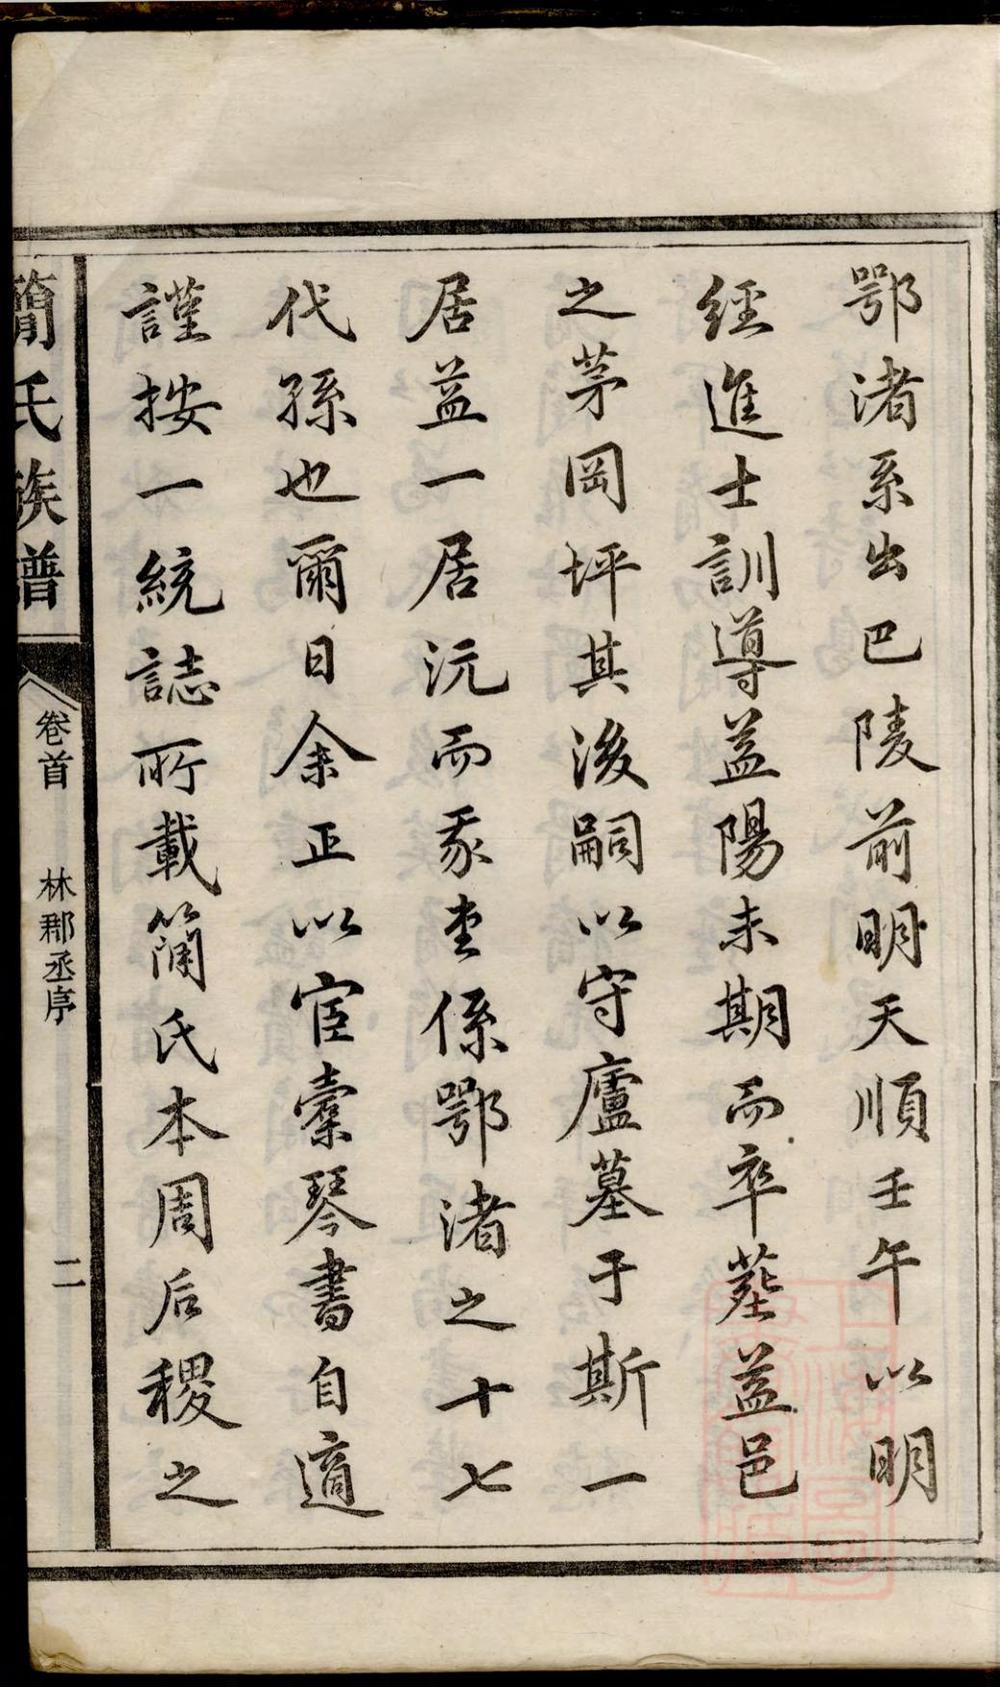 鄂渚系出巴陵前明天順壬午以明
經進士訓導益陽未期而卒塟益邑
之茅岡坪其後嗣以守廬墓于斯一
居益一居沅而豕堂係鄂渚之十七
代孫也爾日余正以宦橐琴書自適
謹按一統誌所載簡氏本周后稷之
簡氏族譜
卷首
林郡丞序
二